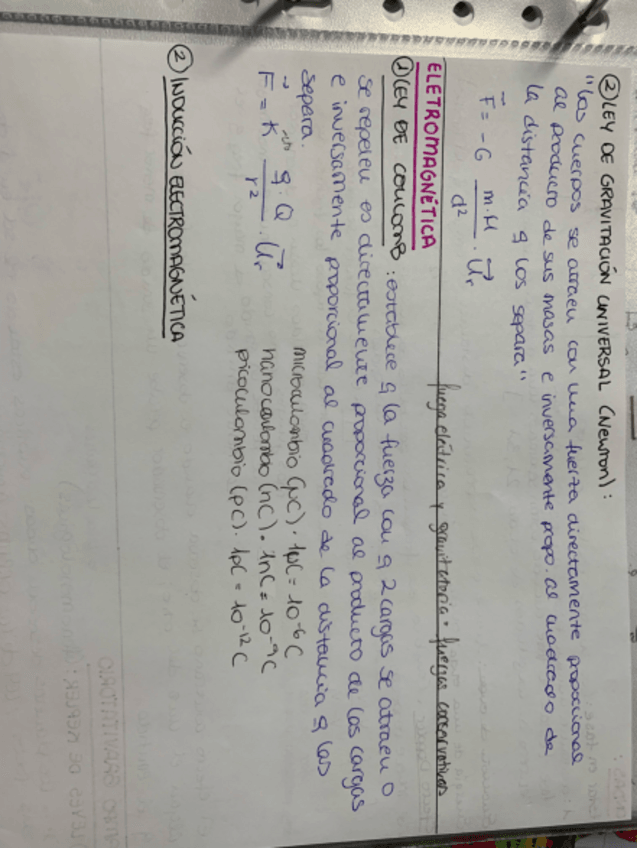 ② LEY DE GRAVITACIÓN UNIVERSAL (Newton):
"los cuerpos se atraen con una fuerza directamente proporcional
al producto de sus masas e inversamente propo. al cuadrado de
la distancia q los separa"
F⃗ = -G m·M / d² · U⃗r
fuerza eléctrica y gravitatoria · fuerzas conservativas
ELETROMAGNÉTICA
① LEY DE COULOMB: establece q la fuerza con q 2 cargas se atraen o
se repelen es directamente proporcional al producto de las cargas
e inversamente proporcional al cuadrado de la distancia q las
separa.
F⃗ = K q·Q / r² · U⃗r
microculombio (μC) · 1μC = 10⁻⁶ C
nanoculombio (nC) · 1nC = 10⁻⁹ C
picoculombio (pC) · 1pC = 10⁻¹² C
② INDUCCIÓN ELECTROMAGNÉTICA